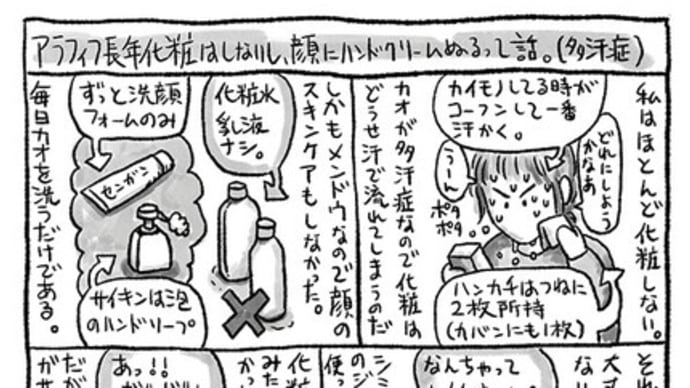 アラフィフ長年化粧はしないし、顔にハンドクリームぬるって話。(多汗症)
私はほとんど化粧しない。
カイモノしてる時が
コーフンして一番
汗かく。
どれにしよう
かなあ
うーん
ポタ
ポタ
ハンカチはつねに
2枚所持
(カバンにも1枚)
カオが多汗症なので化粧は
どうせ汗で流れてしまうのだ
しかもメンドウなので顔の
スキンケアもしなかった。
化粧水
乳液
ナシ。
ずっと洗顔
フォームのみ
センガン
サイキンは泡
のハンドソープ
毎日カオを洗うだけである。
なんちゃって
シミ
のジ
使っ
化粧
みた
かっ
あっ!!
だが
がサ